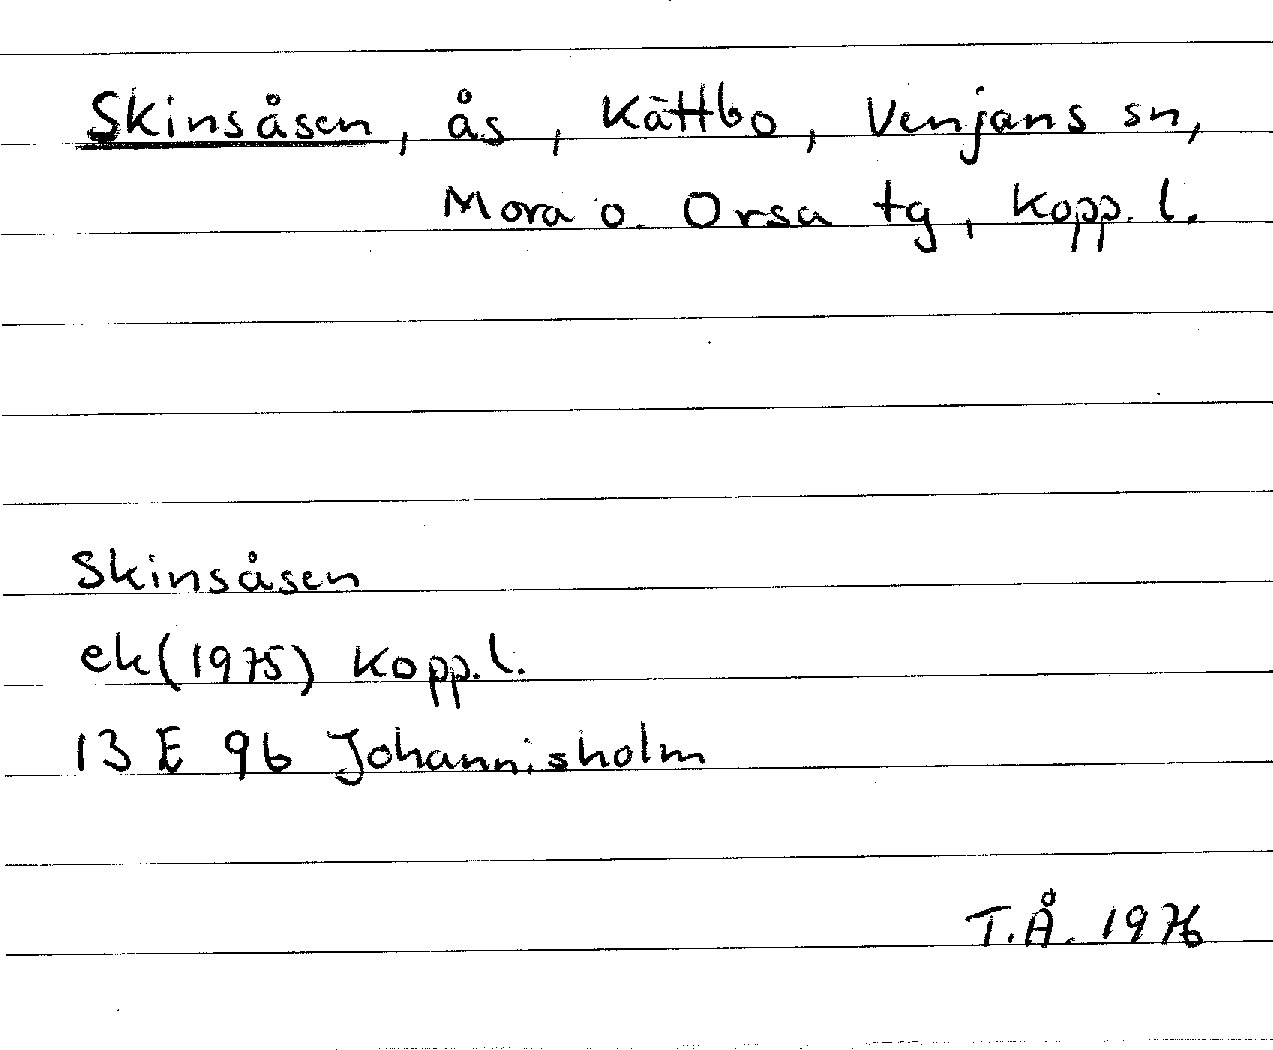 Skinsåsen, ås, Kättbo, Venjans sn,
Mora o. Orsa tg, Kopp. l.
Skinsåsen
ek(1975) Kopp. l.
13 E 9b Johannisholm
T.Å. 1976